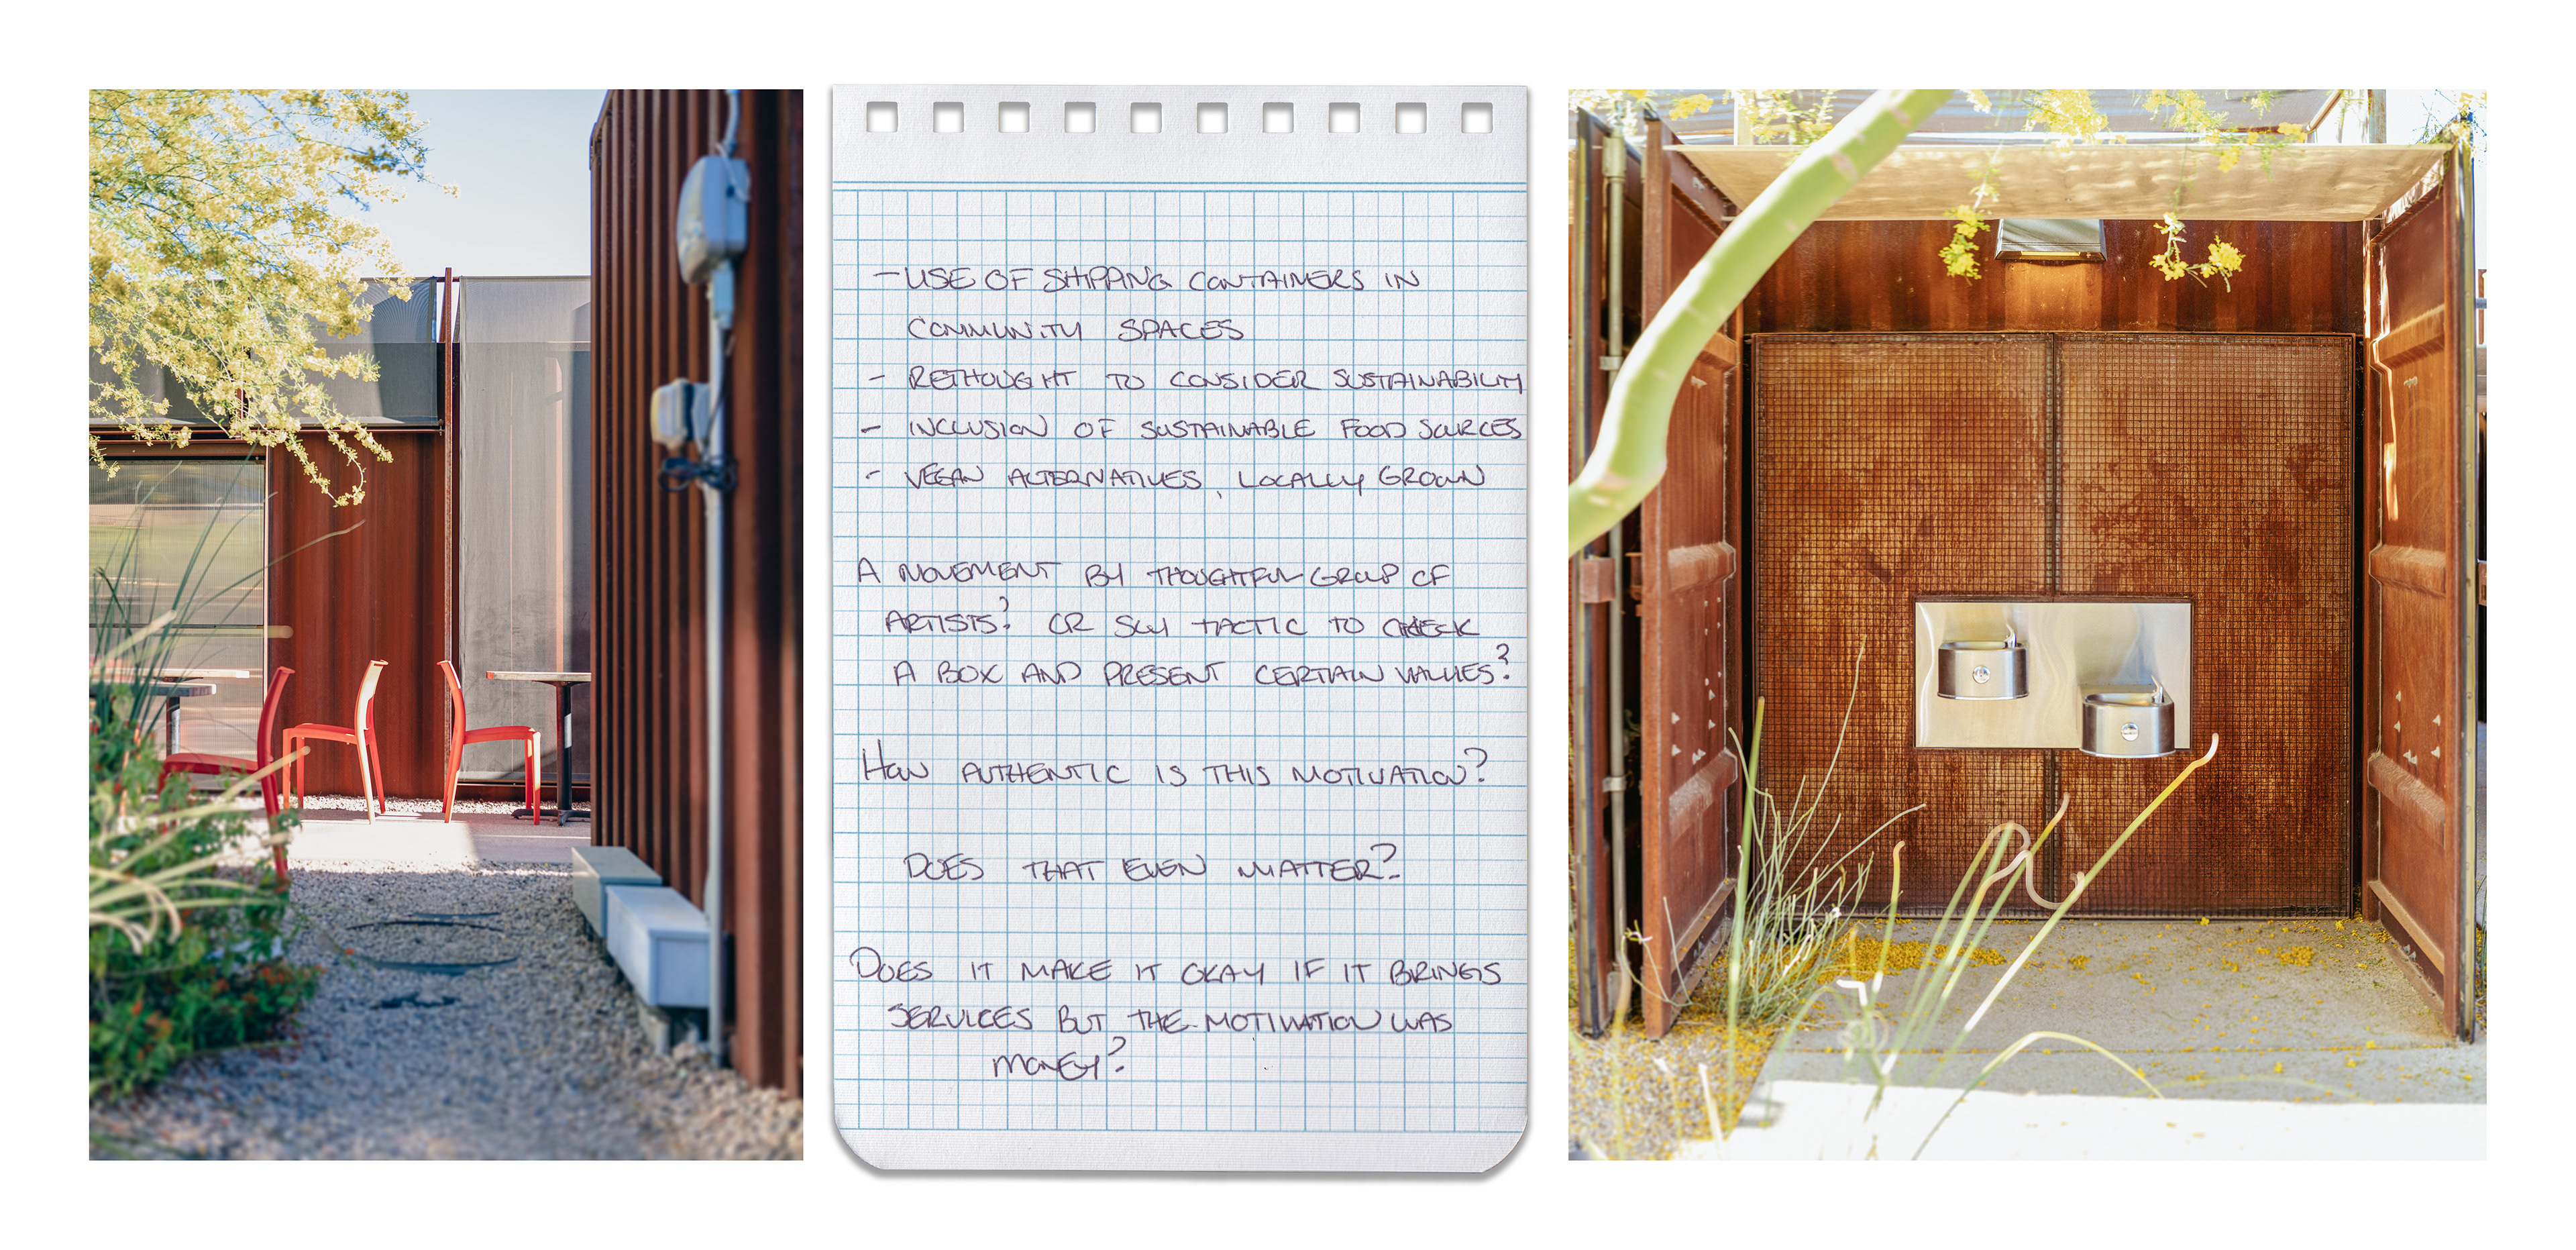 - USE OF SHIPPING CONTAINERS IN
COMMUNITY SPACES
- RETHOUGHT TO CONSIDER SUSTAINABILITY
- INCLUSION OF SUSTAINABLE FOOD SOURCES
- VEGAN ALTERNATIVES, LOCALLY GROWN
A MOVEMENT BY THOUGHTFUL GROUP OF
ARTISTS? OR SLY TACTIC TO CHECK
A BOX AND PRESENT CERTAIN VALUES?
HOW AUTHENTIC IS THIS MOTIVATION?
DOES THAT EVEN MATTER?
DOES IT MAKE IT OKAY IF IT BRINGS
SERVICES BUT THE MOTIVATION WAS
MONEY?